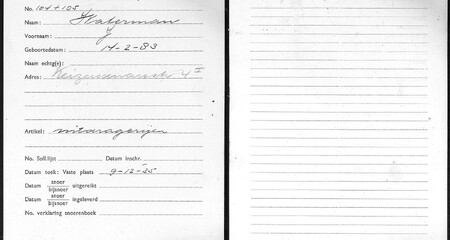 No. 104 + 105
Naam: Waterman
Voornaam: J
Geboortedatum: 14-2-83
Naam echtg(e):
Adres: 4 I
Artikel:
No. Soll.lijst Datum inschr.
Datum toek: Vaste plaats 9-12-35
Datum snoer
bijsnoer uitgereikt
Datum snoer
bijsnoer ingeleverd
No. verklaring snoerenboek